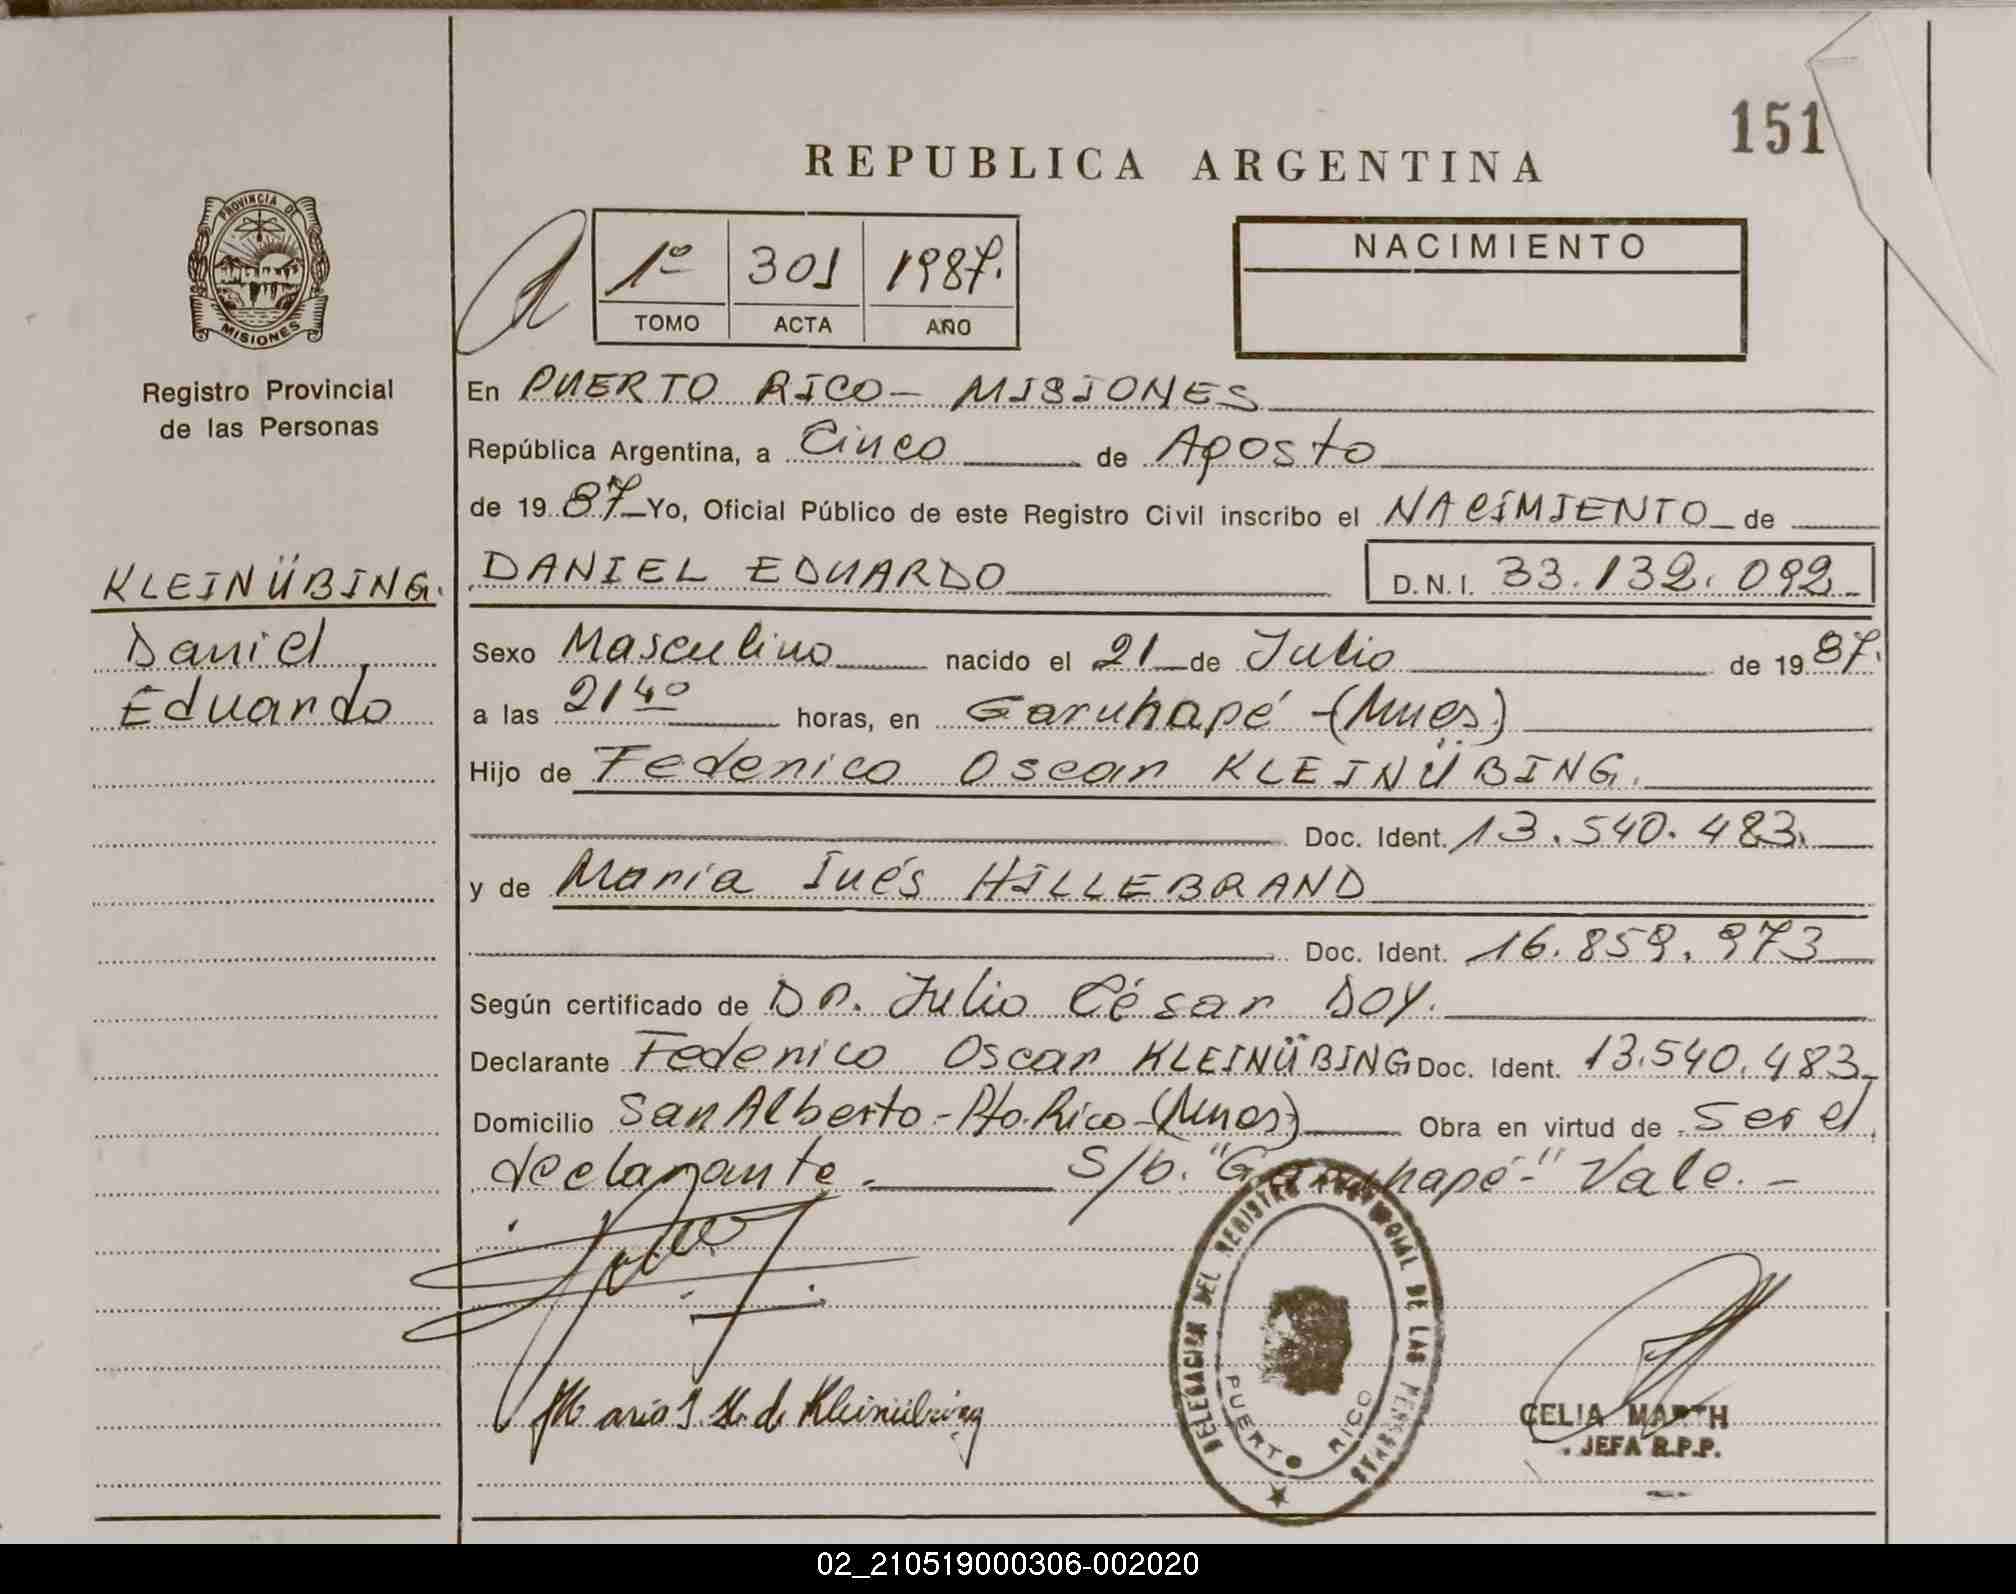 151
REPUBLICA ARGENTINA
PROVINCIA DE
MISIONES
1º 301 1987.
TOMO ACTA AÑO
NACIMIENTO
Registro Provincial
de las Personas
En PUERTO RICO - MISIONES
República Argentina, a Cinco de Agosto
de 1987 Yo, Oficial Público de este Registro Civil inscribo el NACIMIENTO de
KLEINÜBING.
Daniel
Eduardo
DANIEL EDUARDO D.N.I. 33.132.092
Sexo Masculino nacido el 21 de Julio de 1987.
a las 21 40 horas, en Garuhapé - (Mnes)
Hijo de Federico Oscar KLEINÜBING.
Doc. Ident. 13.540.483.
y de María Inés HILLEBRAND
Doc. Ident. 16.859.973
Según certificado de Dr. Julio César DOY.
Declarante Federico Oscar KLEINÜBING Doc. Ident. 13.540.483
Domicilio San Alberto - Pto. Rico - (Mnes) Obra en virtud de ser el
declarante. S/b. "Garuhapé-" Vale. -
DELEGACION DEL REGISTRO PROVINCIAL DE LAS PERSONAS
PUERTO RICO
María I. H. de Kleinübing
CELIA MARTH
JEFA R.P.P.
02_210519000306-002020